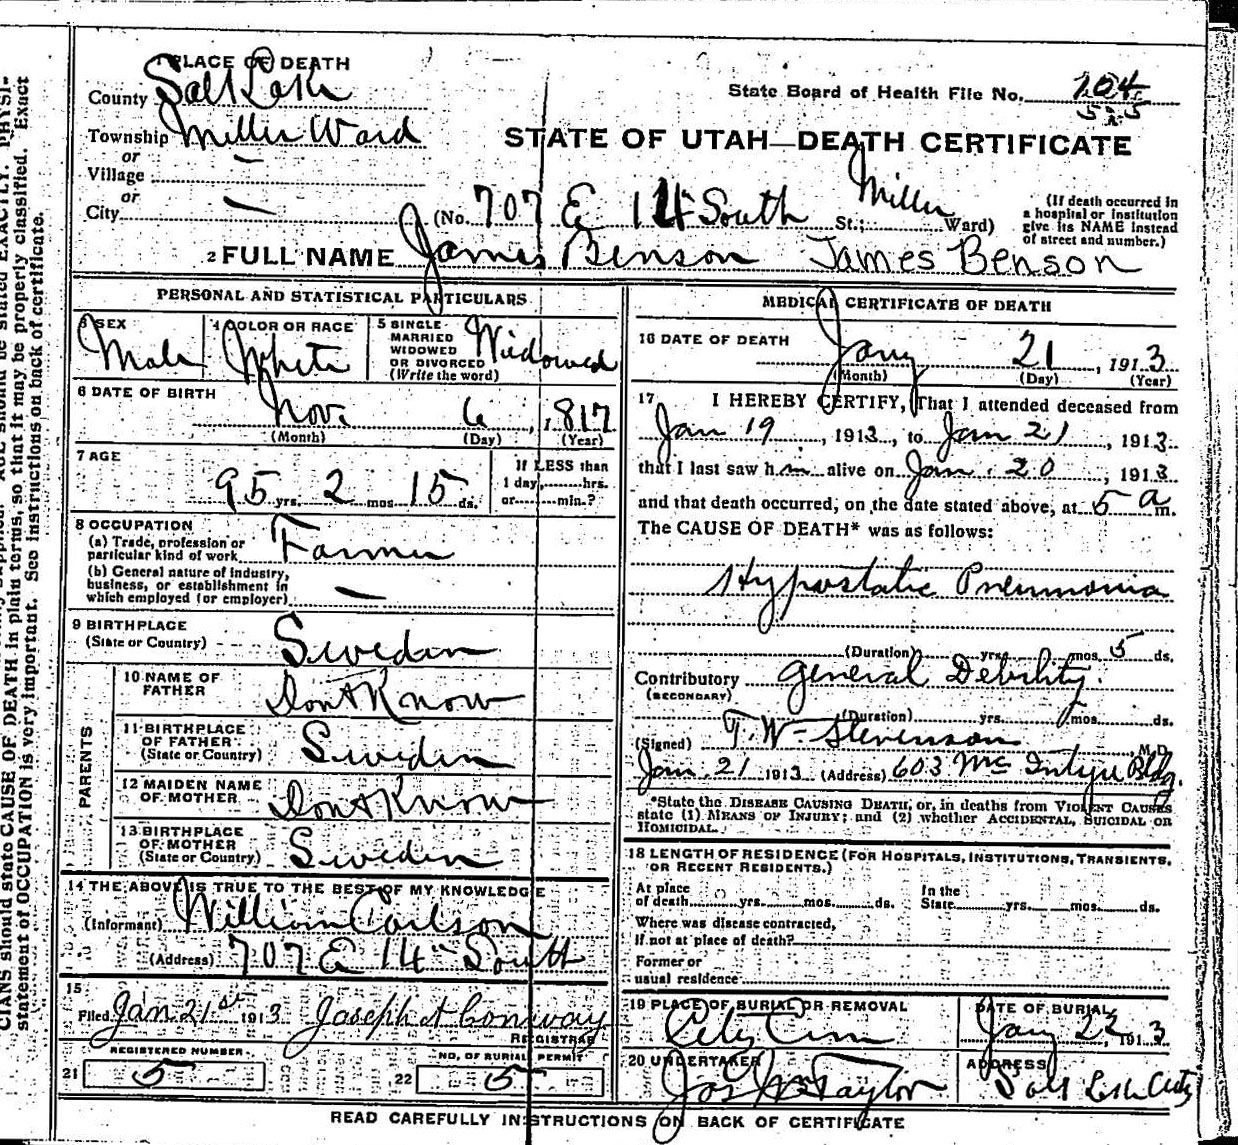 CIANS should state CAUSE OF DEATH in plain terms, so that it may be properly classified. Exact
statement of OCCUPATION is very important. See instructions on back of certificate.
1 PLACE OF DEATH
County Salt Lake
State Board of Health File No. 104
Township Miller Ward
STATE OF UTAH—DEATH CERTIFICATE
or
Village —
or
City —
(No. 707 E 14 South St.; Miller Ward)
(If death occurred in
a hospital or institution
give its NAME instead
of street and number.)
2 FULL NAME James Benson James Benson
PERSONAL AND STATISTICAL PARTICULARS
3 SEX
Male
4 COLOR OR RACE
White
5 SINGLE
MARRIED
WIDOWED
OR DIVORCED
(Write the word)
Widowed
6 DATE OF BIRTH
Nov. 6, 1817
(Month) (Day) (Year)
7 AGE
95 yrs. 2 mos. 15 ds.
If LESS than
1 day, hrs.
or min.?
8 OCCUPATION
(a) Trade, profession or
particular kind of work Farmer
(b) General nature of industry,
business, or establishment in
which employed (or employer) —
9 BIRTHPLACE
(State or Country) Sweden
PARENTS
10 NAME OF
FATHER Dont Know
11 BIRTHPLACE
OF FATHER
(State or Country) Sweden
12 MAIDEN NAME
OF MOTHER Dont Know
13 BIRTHPLACE
OF MOTHER
(State or Country) Sweden
14 THE ABOVE IS TRUE TO THE BEST OF MY KNOWLEDGE
(Informant) William Carlson
(Address) 707 E 14 South
15
Filed Jan. 21st 1913 Joseph A Conway
REGISTRAR
REGISTERED NUMBER
21 5
NO. OF BURIAL PERMIT
22 5
MEDICAL CERTIFICATE OF DEATH
16 DATE OF DEATH
Jany 21, 1913
(Month) (Day) (Year)
17 I HEREBY CERTIFY, That I attended deceased from
Jan 19, 1913, to Jan 21, 1913
that I last saw him alive on Jan. 20, 1913
and that death occurred, on the date stated above, at 5 a m.
The CAUSE OF DEATH* was as follows:
Hypostatic Pneumonia
(Duration) yrs. mos. 5 ds.
Contributory General Debility.
(SECONDARY)
(Duration) yrs. mos. ds.
(Signed) T. W. Stevenson, M.D.
Jan. 21 1913 (Address) 603 McIntyre Bldg.
*State the DISEASE CAUSING DEATH, or, in deaths from VIOLENT CAUSES
state (1) MEANS OF INJURY; and (2) whether ACCIDENTAL, SUICIDAL OR
HOMICIDAL.
18 LENGTH OF RESIDENCE (FOR HOSPITALS, INSTITUTIONS, TRANSIENTS,
OR RECENT RESIDENTS.)
At place
of death yrs. mos. ds.
In the
State yrs. mos. ds.
Where was disease contracted,
If not at place of death?
Former or
usual residence
19 PLACE OF BURIAL OR REMOVAL
City Cem
DATE OF BURIAL
Jany 22, 1913
20 UNDERTAKER
Jos Wm Taylor
ADDRESS
Salt Lake City
READ CAREFULLY INSTRUCTIONS ON BACK OF CERTIFICATE